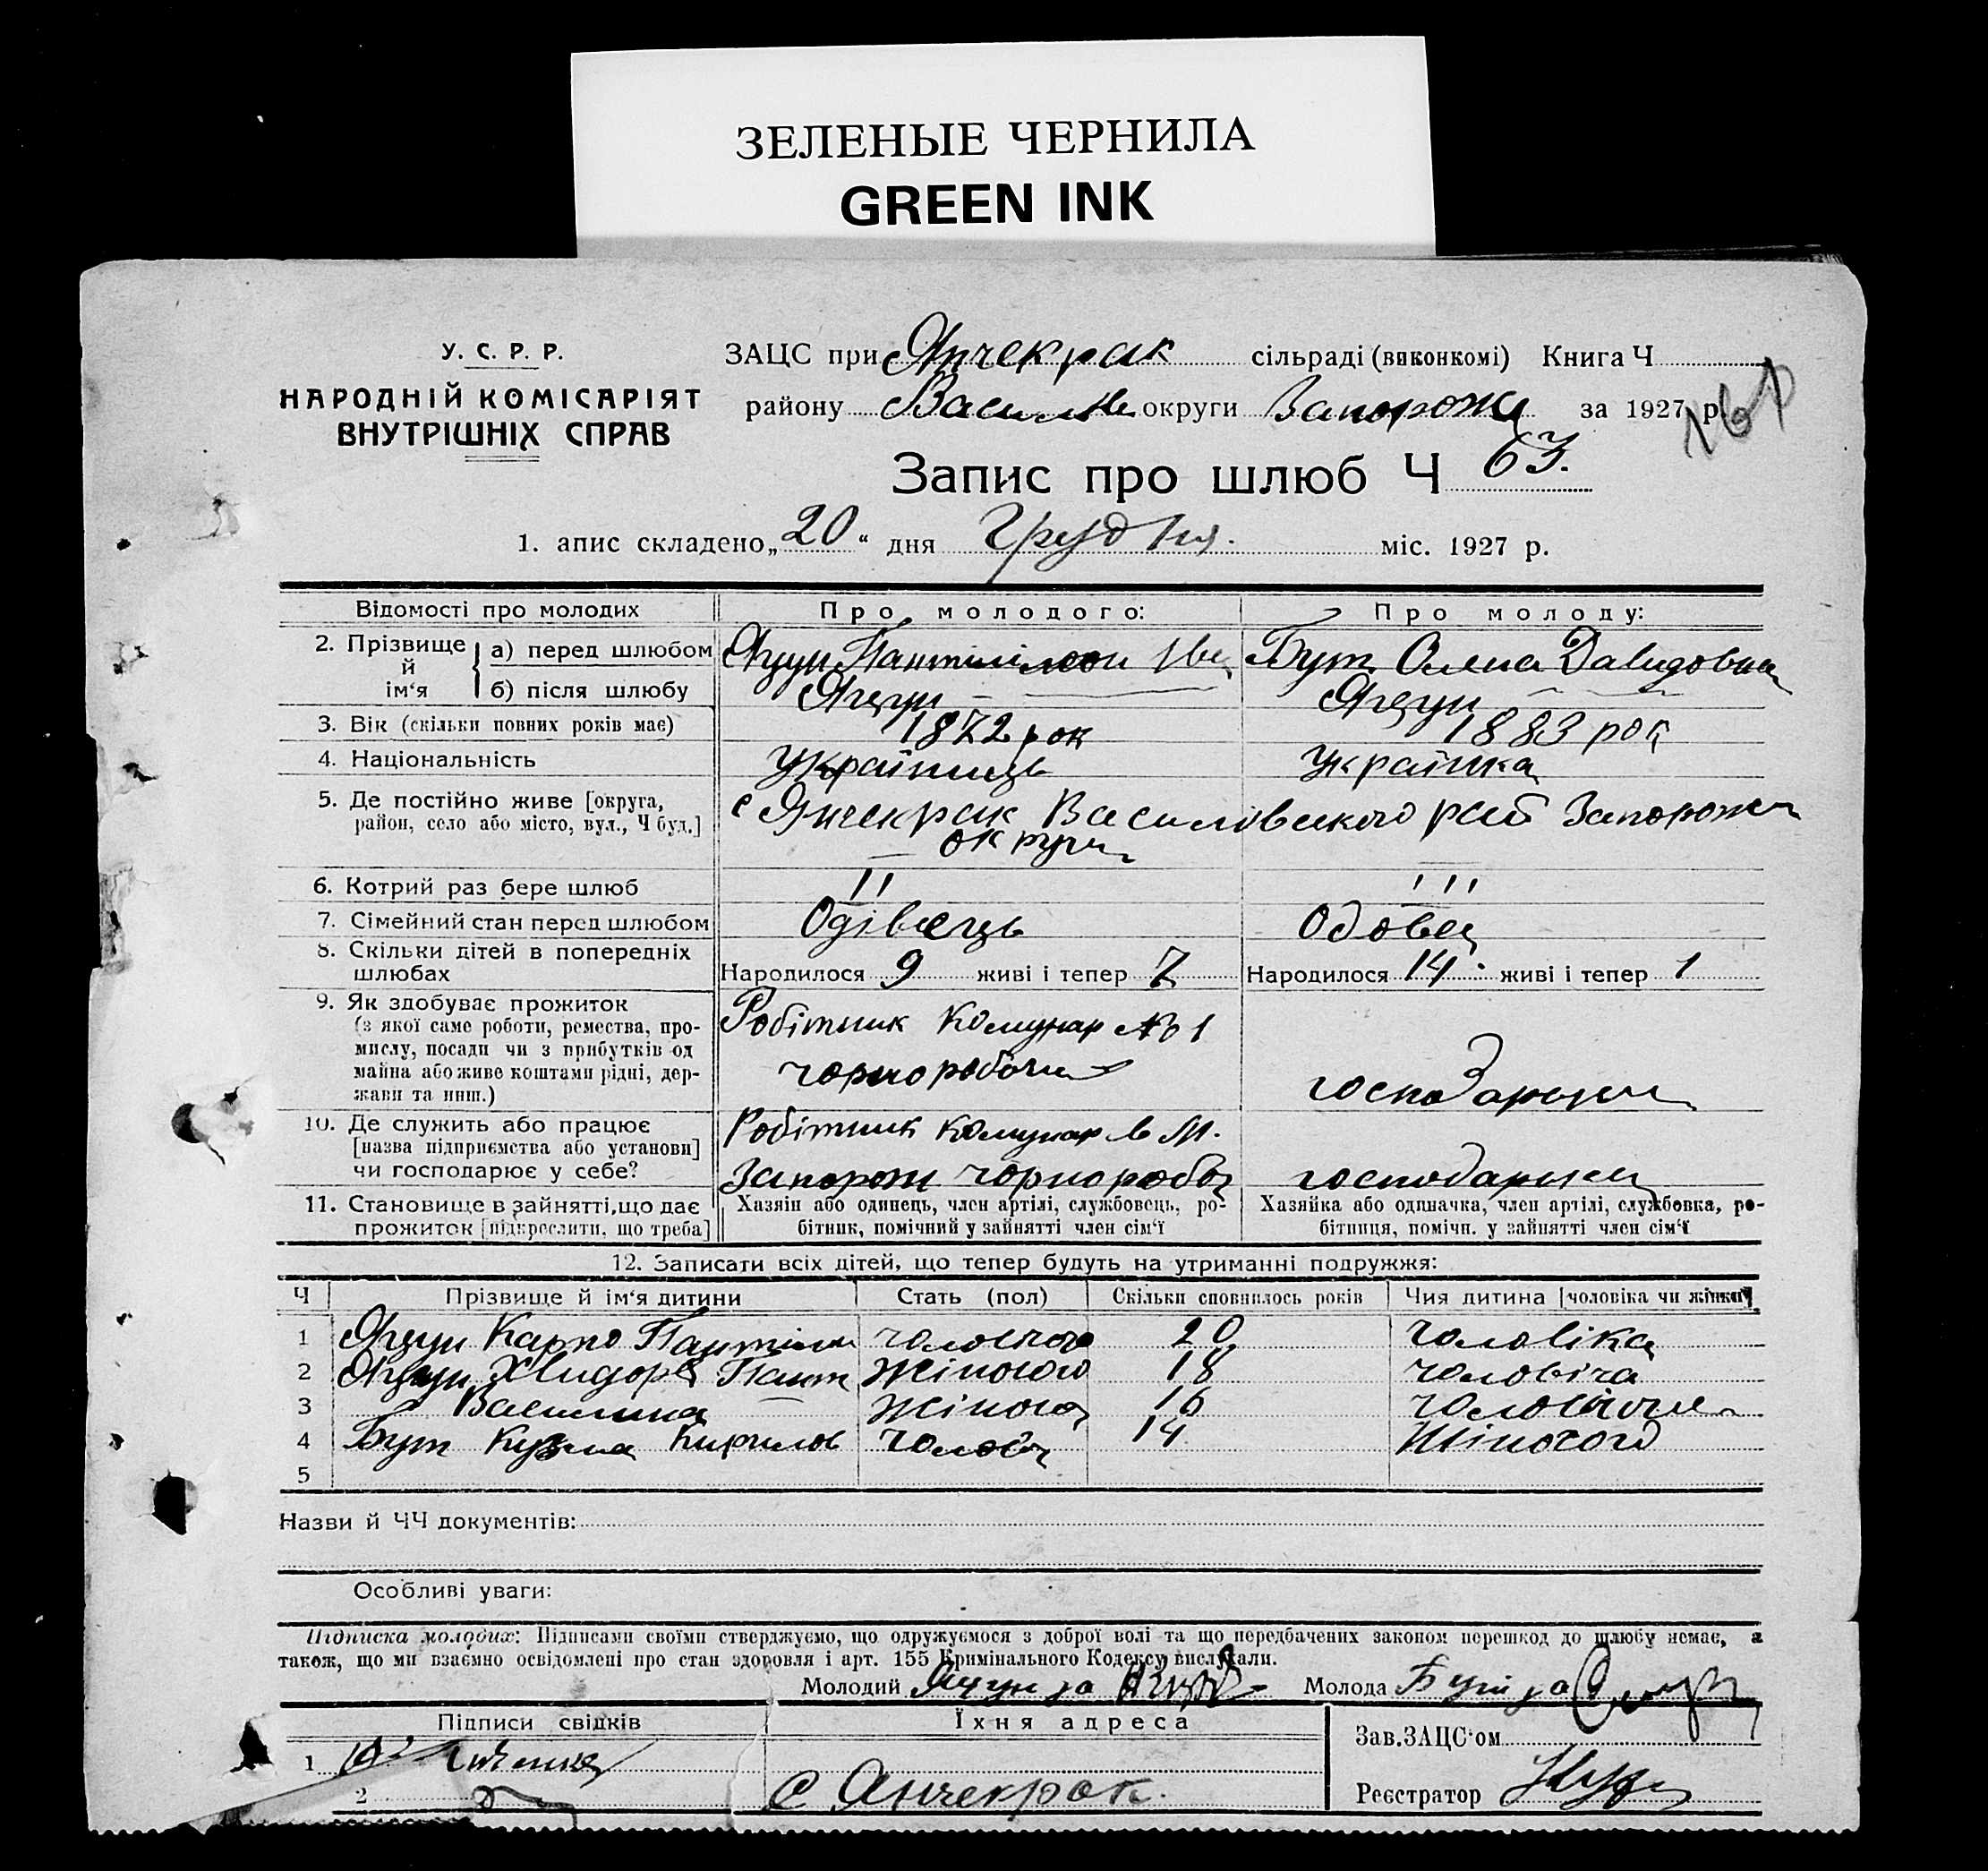 ЗЕЛЕНЫЕ ЧЕРНИЛА
GREEN INK
У. С. Р. Р.
НАРОДНІЙ КОМІСАРІЯТ
ВНУТРІШНІХ СПРАВ
ЗАЦС при Янчекрак сільраді (виконкомі) Книга Ч
району Василів округи Запорожс за 1927 р.
Запис про шлюб Ч 63.
1. апис складено „20“ дня Грудня. міс. 1927 р.
Відомості про молодих Про молодого: Про молоду:
2. Прізвище й ім‘я а) перед шлюбом Яцун Пантілімон Ів Бут Олена Давидовна
б) після шлюбу Яцун Яцун
3. Вік (скільки повних років має) 1872 рок 1883 рок
4. Національність Українець Українка
5. Де постійно живе [округа, район, село або місто, вул., Ч буд.] с Янчекрак Василівського рай Запорожс
округи
6. Котрий раз бере шлюб II III
7. Сімейний стан перед шлюбом Одівець Одовец
8. Скільки дітей в попередніх шлюбах Народилося 9 живі і тепер 7 Народилося 14 живі і тепер 1
9. Як здобуває прожиток
(з якої саме роботи, ремества, про-
мислу, посади чи з прибутків од
майна або живе коштами рідні, дер-
жави та инш.)
Робітник Комунар № 1
чорноробочи
господарки
10. Де служить або працює
[назва підприємства або установи]
чи господарює у себе?
Робітник Комунар в м.
Запорож чорноробоч
господарки
11. Становище в зайнятті, що дає
прожиток [підкреслити, що треба]
Хазяїн або одинець, член артілі, службовець, ро-
бітник, помічний у зайнятті член сім‘ї
Хазяйка або одиначка, член артілі, службовка, ро-
бітниця, помічн. у зайнятті член сім‘ї
12. Записати всіх дітей, що тепер будуть на утриманні подружжя:
Ч Прізвище й ім‘я дитини Стать (пол) Скільки сповнилось років Чия дитина [чоловіка чи жінки]
1 Яцун Карпо Пантілім чоловічого 20 Чоловіка
2 Яцун Хвидора Пант жіночого 18 чоловіча
3 Василина жіночо 16 чоловічои
4 Бут Кузма Кирилов чолові 14 жіночого
5
Назви й ЧЧ документів:
Особливі уваги:
Підписка молодих: Підписами своїми стверджуємо, що одружуємося з доброї волі та що передбачених законом перешкод до шлюбу немає, а
також, що ми взаємно освідомлені про стан здоровля і арт. 155 Кримінального Кодексу вислухали.
Молодий Яцун за Молода Бут за
Підписи свідків Їхня адреса
Зав. ЗАЦС‘ом
1
2 с Янчекрак.
Реєстратор